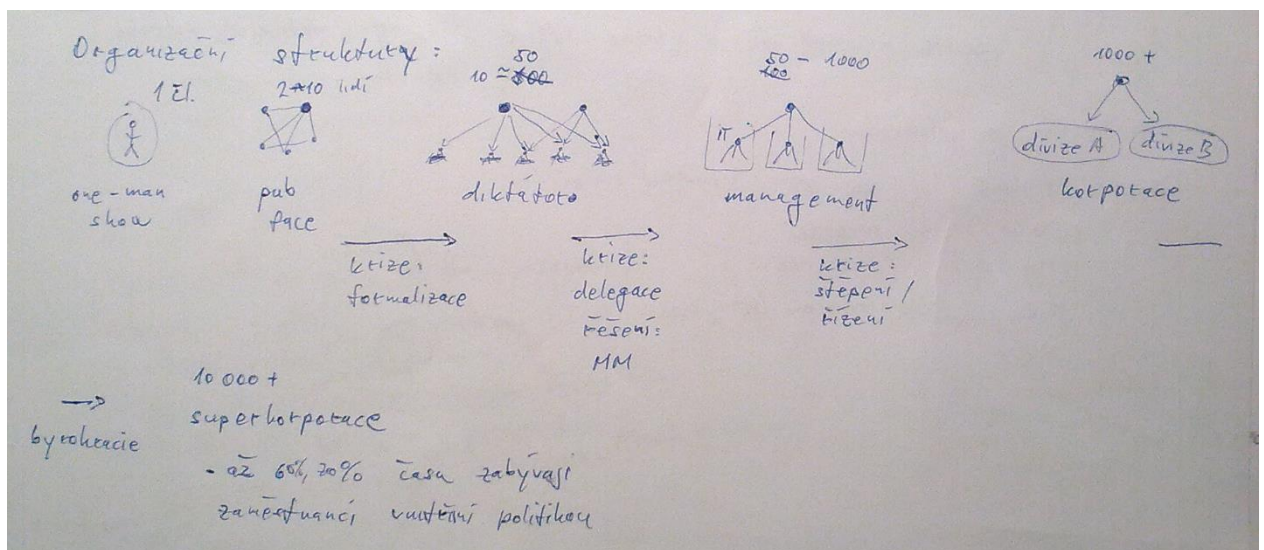 Organizační struktury:
1 čl.
one-man
show
2-10 lidí
pub
face
50
10 - 100
diktátoro
50 - 1000
100
IT
management
1000 +
divize A
divize B
korporace
krize:
formalizace
krize:
delegace
řešení:
MM
krize:
štěpení /
řízení
byrokracie
10 000 +
superkorporace
- až 60%, 70% času zabývají
zaměstnanci vnitřní politikou